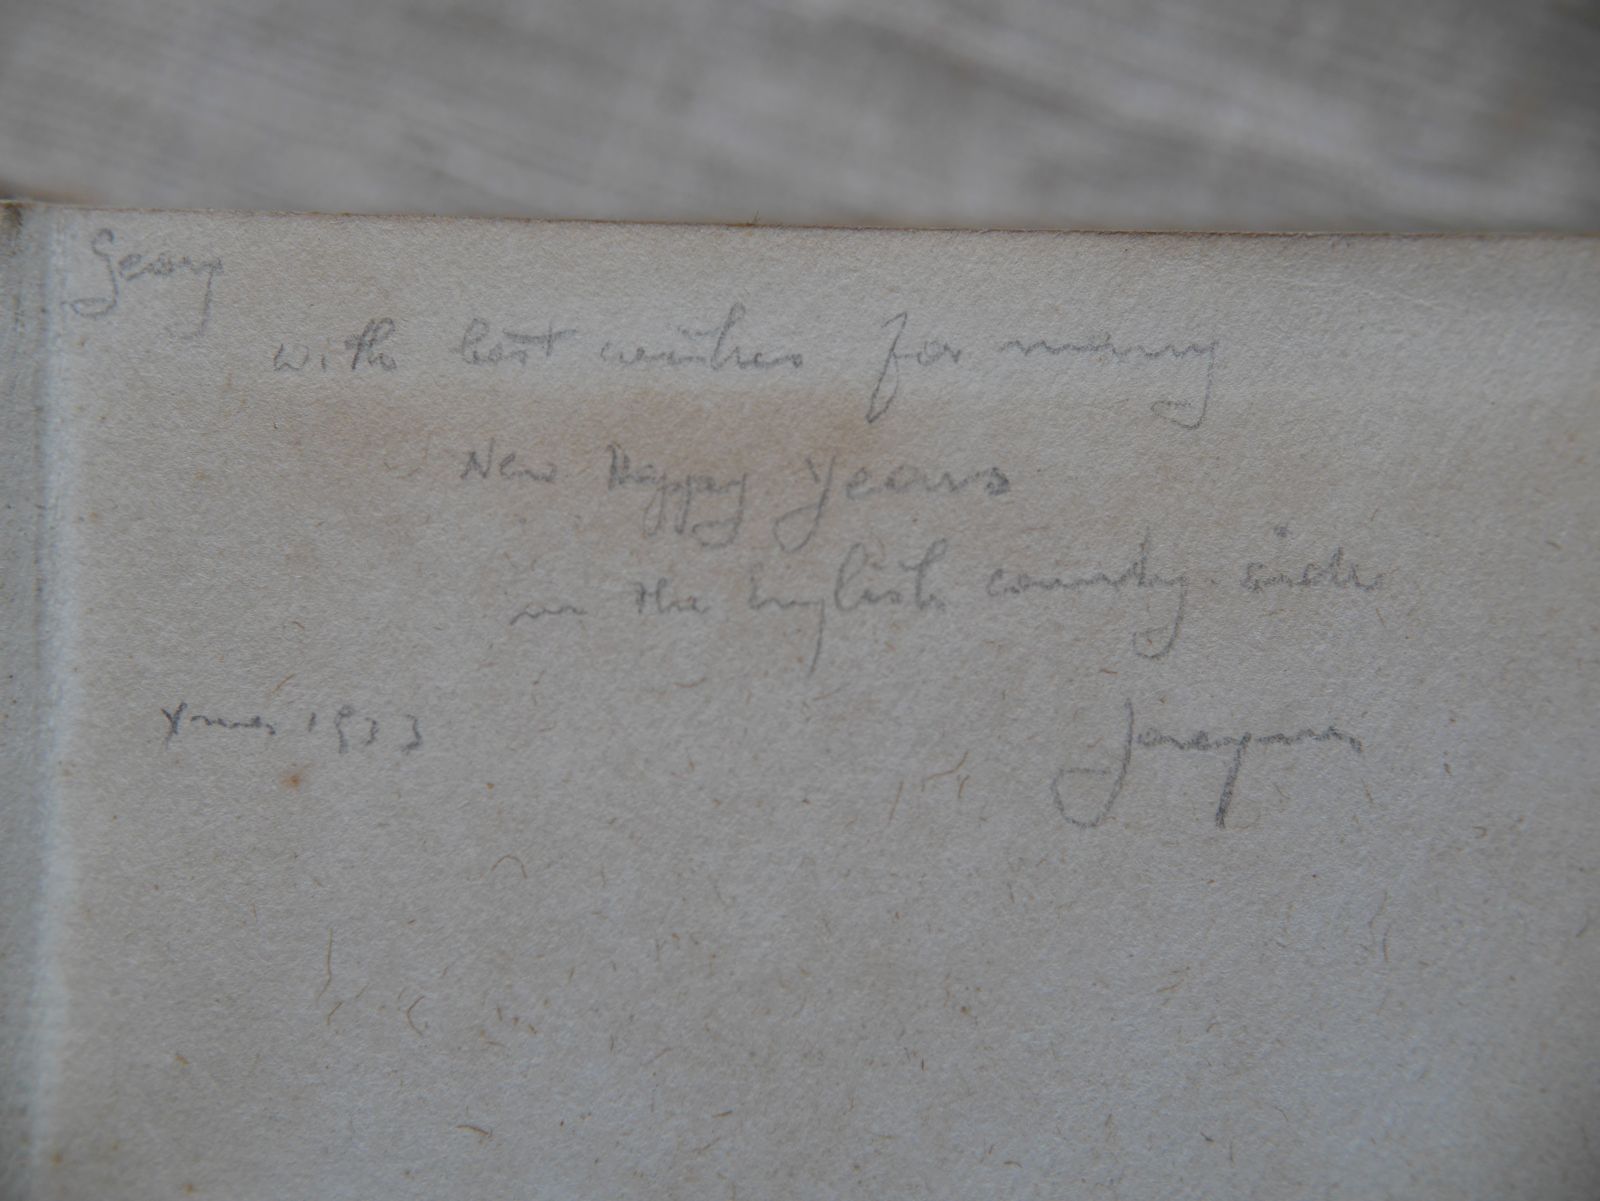 Georg
with best wishes for many
New Happy Years
in the English country side
Xmas 1933